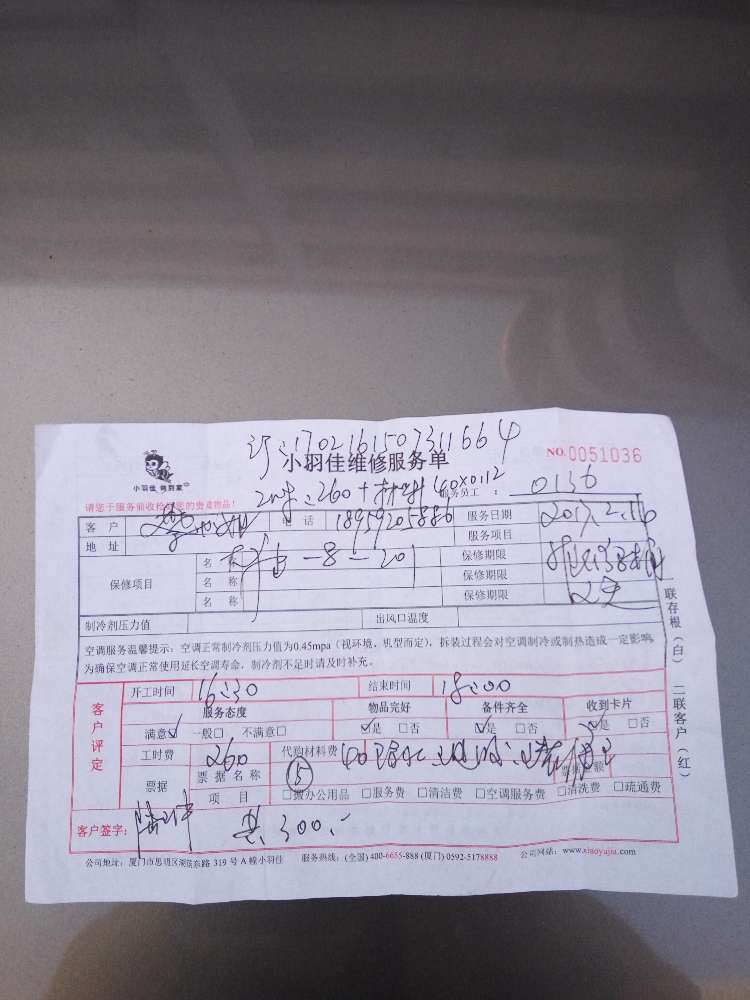 1702161507311664
小羽佳 特到家
小羽佳维修服务单
NO.0051036
2小时:260+材料40×0.112
服务员工: 0136
请您于服务前收检好您的贵重物品!
客户 电话 18959205886 服务日期 2017.2.
地址 服务项目
保修项目 名称 -8-201 保修期限
名称 保修期限
名称 保修期限
制冷剂压力值 出风口温度
空调服务温馨提示:空调正常制冷剂压力值为0.45mpa(视环境,机型而定),拆装过程会对空调制冷或制热造成一定影响,
为确保空调正常使用延长空调寿命,制冷剂不足时请及时补充。
一联存根(白) 二联客户(红)
客户评定
开工时间 16:30 结束时间 18:00
服务态度 物品完好 备件齐全 收到卡片
满意☑ 一般□ 不满意□ ☑是 □否 ☑是 □否 ☑是 □否
工时费 260 代购材料费 40
票据 票据名称 票据金额
项目 □搬办公用品 □服务费 □清洁费 □空调服务费 □清洗费 □疏通费
客户签字: 共300.-
公司地址:厦门市思明区湖滨东路319号A幢小羽佳 服务热线:(全国)400-6655-888(厦门)0592-5178888 公司网站:www.xiaoyujia.com